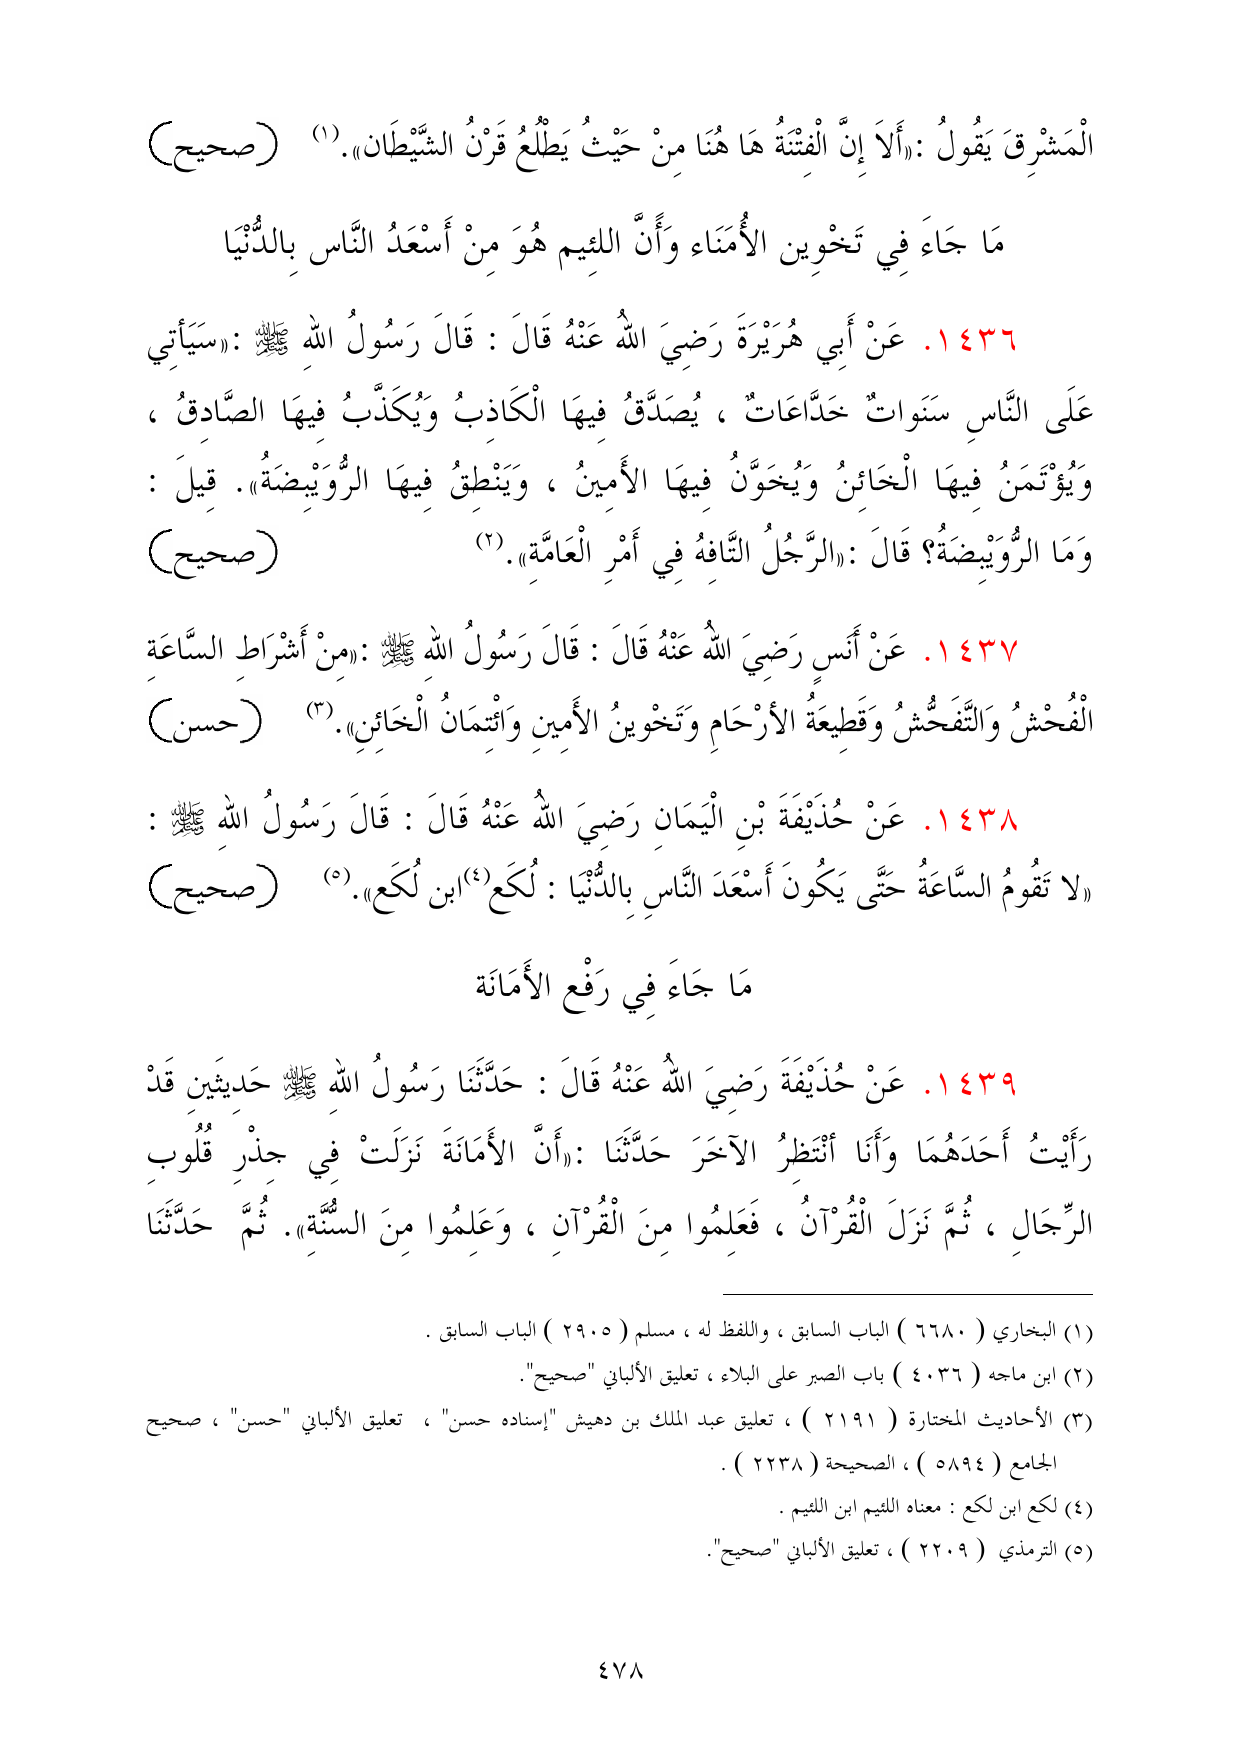 الْمَشْرِقَ يَقُولُ :«أَلاَ إِنَّ الْفِتْنَةُ هَا هُنَا مِنْ حَيْثُ يَطْلُعُ قَرْنُ الشَّيْطَانِ».(١) (صحيح)
مَا جَاءَ فِي تَخْوِينِ الأُمَنَاء وَأََنَّ اللئِيم هُوَ مِنْ أَسْعَدُ النَّاسِ بِالدُّنْيَا
١٤٣٦. عَنْ أَبِي هُرَيْرَةَ رَضِيَ اللهُ عَنْهُ قَالَ : قَالَ رَسُولُ اللهِ ﷺ :«سَيَأتِي
عَلَى النَّاسِ سَنَواتٌ خَدَّاعَاتٌ ، يُصَدَّقُ فِيهَا الْكَاذِبُ وَيُكَذَّبُ فِيهَا الصَّادِقُ ،
وَيُؤْتَمَنُ فِيهَا الْخَائِنُ وَيُخَوَّنُ فِيهَا الأَمِينُ ، وَيَنْطِقُ فِيهَا الرُّوَيْبِضَةُ». قِيلَ :
وَمَا الرُّوَيْبِضَةُ؟ قَالَ :«الرَّجُلُ التَّافِهُ فِي أَمْرِ الْعَامَّةِ».(٢) (صحيح)
١٤٣٧. عَنْ أَنَسٍ رَضِيَ اللهُ عَنْهُ قَالَ : قَالَ رَسُولُ اللهِ ﷺ :«مِنْ أَشْرَاطِ السَّاعَةِ
الْفُحْشُ وَالتَّفَحُّشُ وَقَطِيعَةُ الأرْحَامِ وَتَخْوِينُ الأَمِينِ وَائْتِمَانُ الْخَائِنِ».(٣) (حسن)
١٤٣٨. عَنْ حُذَيْفَةَ بْنِ الْيَمَانِ رَضِيَ اللهُ عَنْهُ قَالَ : قَالَ رَسُولُ اللهِ ﷺ :
«لا تَقُومُ السَّاعَةُ حَتَّى يَكُونَ أَسْعَدَ النَّاسِ بِالدُّنْيَا : لُكَع(٤)ابن لُكَع».(٥) (صحيح)
مَا جَاءَ فِي رَفْعِ الأَمَانَة
١٤٣٩. عَنْ حُذَيْفَةَ رَضِيَ اللهُ عَنْهُ قَالَ : حَدَّثَنَا رَسُولُ اللهِ ﷺ حَدِيثَينِ قَدْ
رَأَيْتُ أَحَدَهُمَا وَأَنَا أنْتَظِرُ الآخَرَ حَدَّثَنَا :«أَنَّ الأَمَانَةَ نَزَلَتْ فِي جِذْرِ قُلُوبِ
الرِّجَالِ ، ثُمَّ نَزَلَ الْقُرْآنُ ، فَعَلِمُوا مِنَ الْقُرْآنِ ، وَعَلِمُوا مِنَ السُّنَّةِ». ثُمَّ حَدَّثَنَا
(١) البخاري ( ٦٦٨٠ ) الباب السابق ، واللفظ له ، مسلم ( ٢٩٠٥ ) الباب السابق .
(٢) ابن ماجه ( ٤٠٣٦ ) باب الصبر على البلاء ، تعليق الألباني "صحيح".
(٣) الأحاديث المختارة ( ٢١٩١ ) ، تعليق عبد الملك بن دهيش "إسناده حسن" ، تعليق الألباني "حسن" ، صحيح
الجامع ( ٥٨٩٤ ) ، الصحيحة ( ٢٢٣٨ ) .
(٤) لكع ابن لكع : معناه اللئيم ابن اللئيم .
(٥) الترمذي ( ٢٢٠٩ ) ، تعليق الألباني "صحيح".
٤٧٨